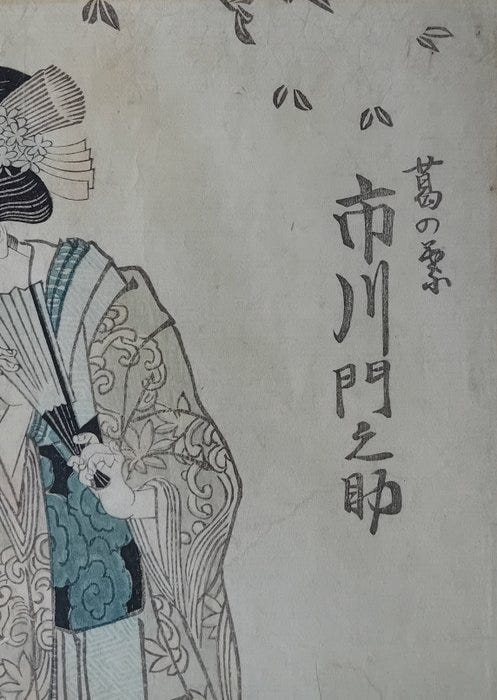 葛の葉
市川門之助